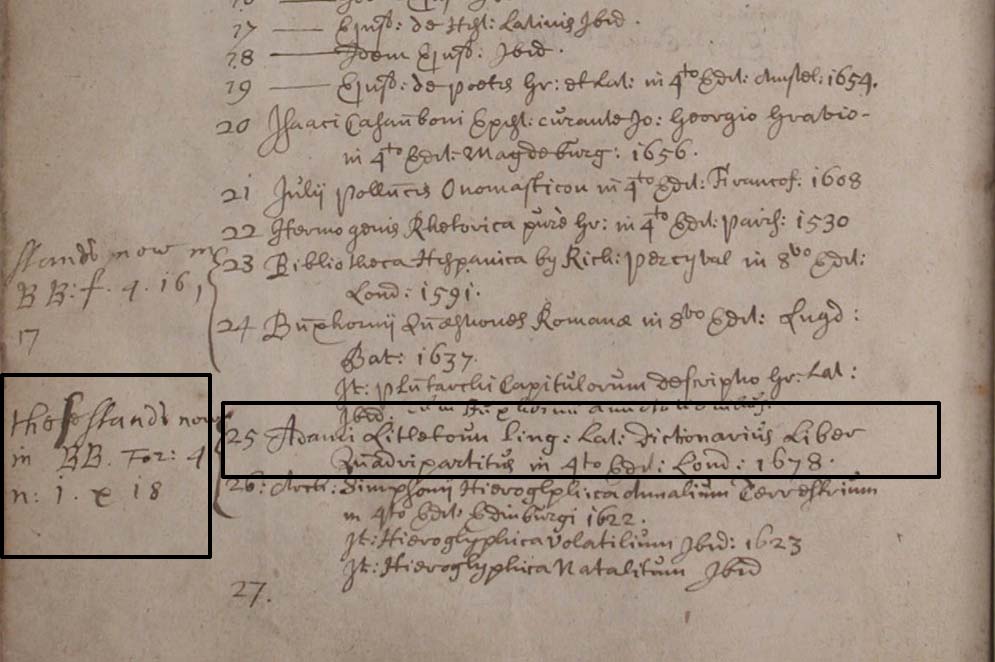 17 —— Ejusd: de Hist: Latinis Ibid.
18 —— Idem Ejusd: Ibid.
19 —— Ejusd: de poetis Gr: et Lat: in 4to Edit: Amstel: 1654.
20 Isaaci Casauboni Epist: curante Jo: Georgio Gravio-
in 4to Edit: Magdeburg: 1656.
21 Julii pollucis Onomasticon in 4to Edit: Francof: 1608
22 Hermogenis Rhetorica purè Gr: in 4to Edit: Paris: 1530
stands now in
23 Bibliotheca Hispanica by Rich: percyval in 8vo Edit:
BB: f. 4. 16,
Lond: 1591.
17
24 Buxhornii Quæstiones Romanæ in 8vo Edit: Lugd:
Bat: 1637.
It: plutarchi Capitulorum descriptio Gr: Lat:
Ibid:
these stands now
25 Adami Litletoun ling: Lat: Dictionarius Liber
in BB. For: 4
Quadripartitus in 4to Edit: Lond: 1678.
n: 1. & 18
26: Arch: Simpsonii Hieroglyphica Animalium Terrestrium
in 4to Edit: Edinburgi 1622.
It: Hieroglyphica Volatilium Ibid: 1623
It: Hieroglyphica Natalitum Ibid
27.